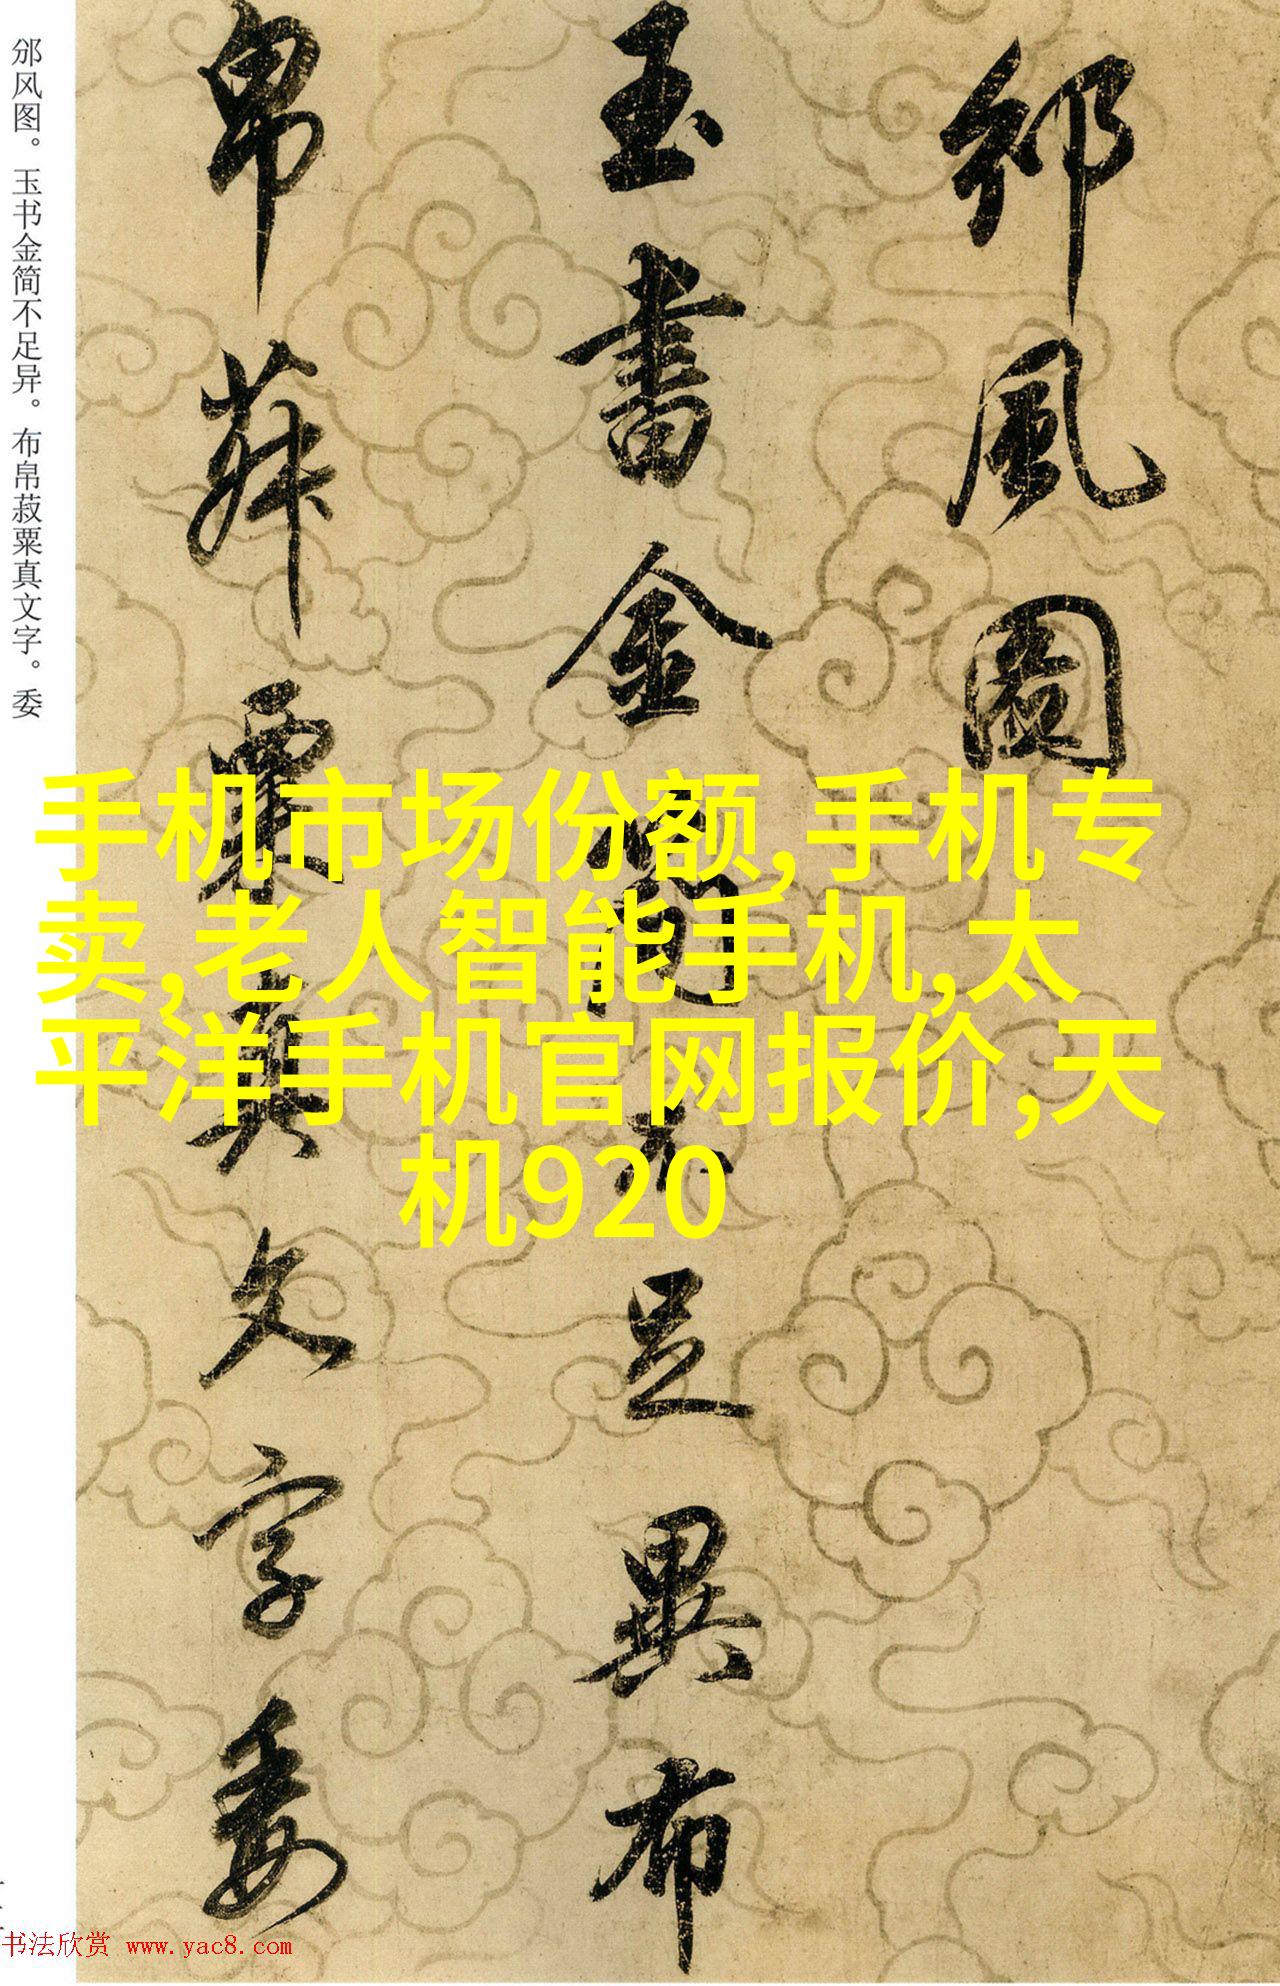 邠风图。玉书金简不足异。布帛菽粟真文字。委
邠風圖
玉書金簡不足異布
帛菽粟真文字委
手机市场份额,手机专
卖,老人智能手机,太
平洋手机官网报价,天
机920
书法欣赏 www.yac8.com